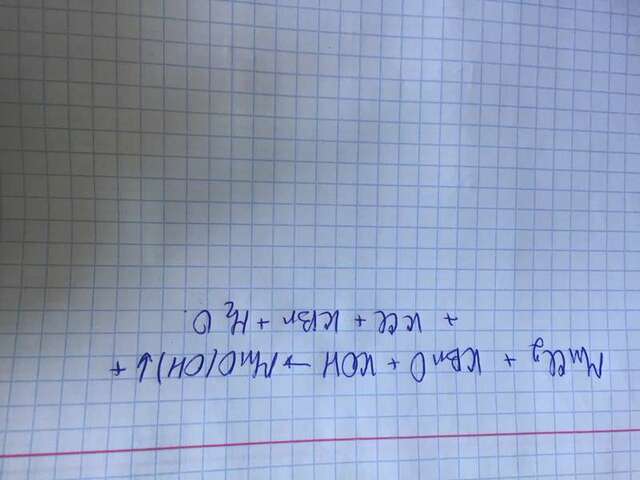 MnCl₂ + KBrO + KOH → MnO(OH)↓ +
+ KCl + KBr + H₂O